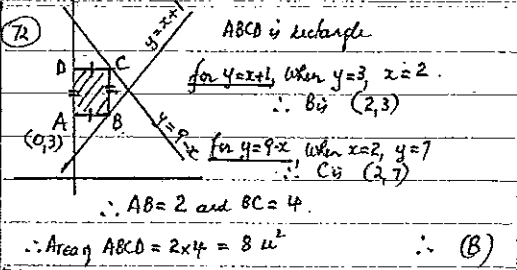 72
y=x+1
D
C
A
B
(0,3)
y=9-x
ABCD is rectangle
for y=x+1, when y=3, x=2.
∴ B is (2,3)
for y=9-x when x=2, y=7
∴ C is (2,7)
∴ AB=2 and BC=4.
∴ Area of ABCD = 2×4 = 8 u²
∴ (B)